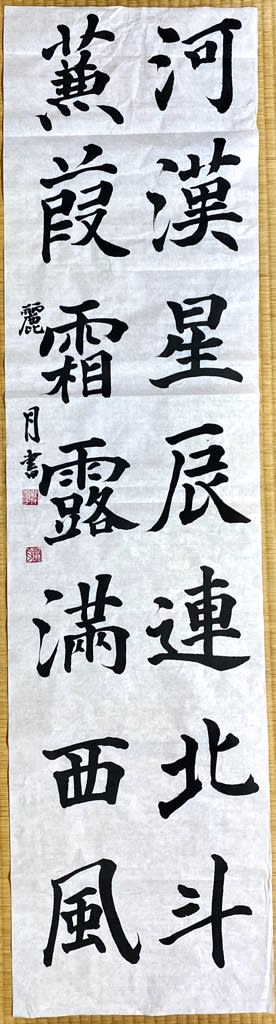 河漢星辰連北斗
蒹葭霜露滿西風
麗月書